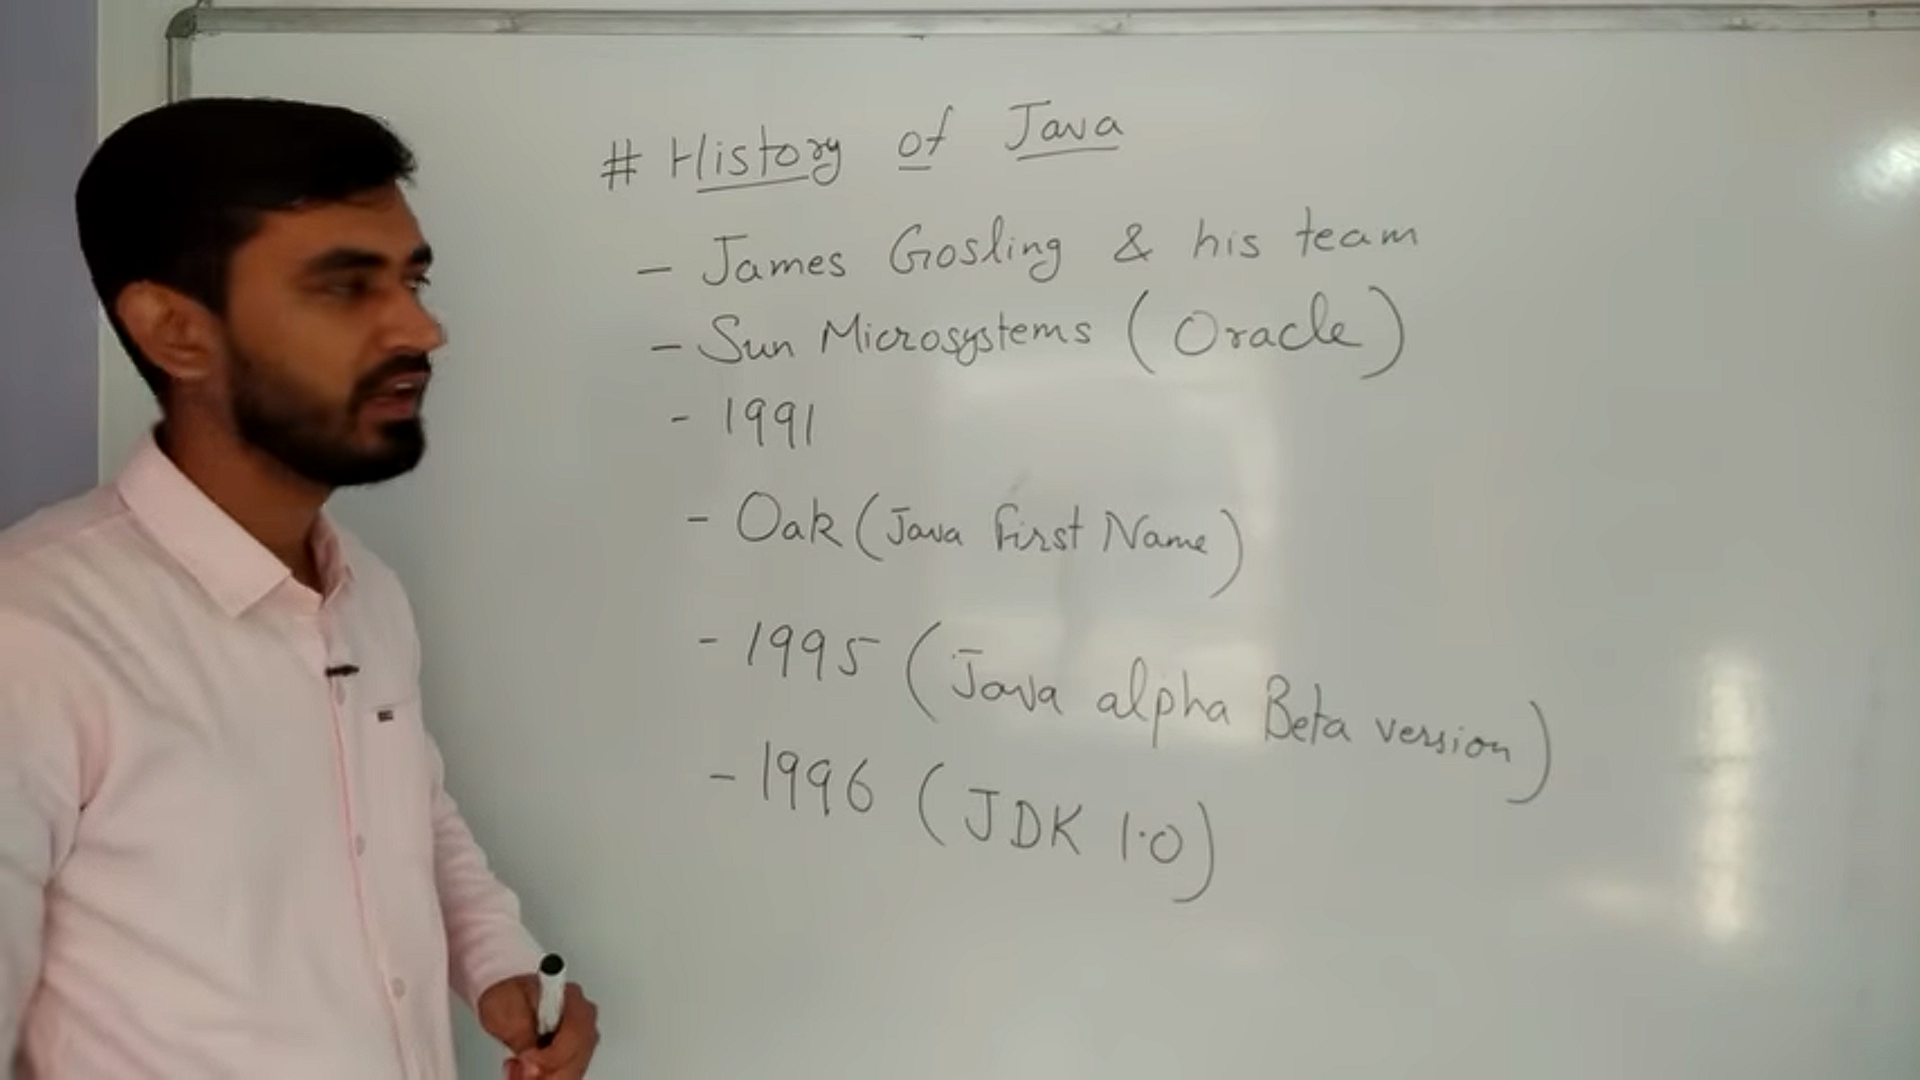 # History of Java
- James Gosling & his team
- Sun Microsystems (Oracle)
- 1991
- Oak (Java First Name)
- 1995 (Java alpha Beta version)
- 1996 (JDK 1.0)